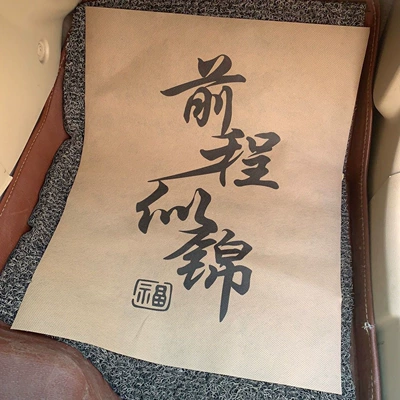 前程似锦
福